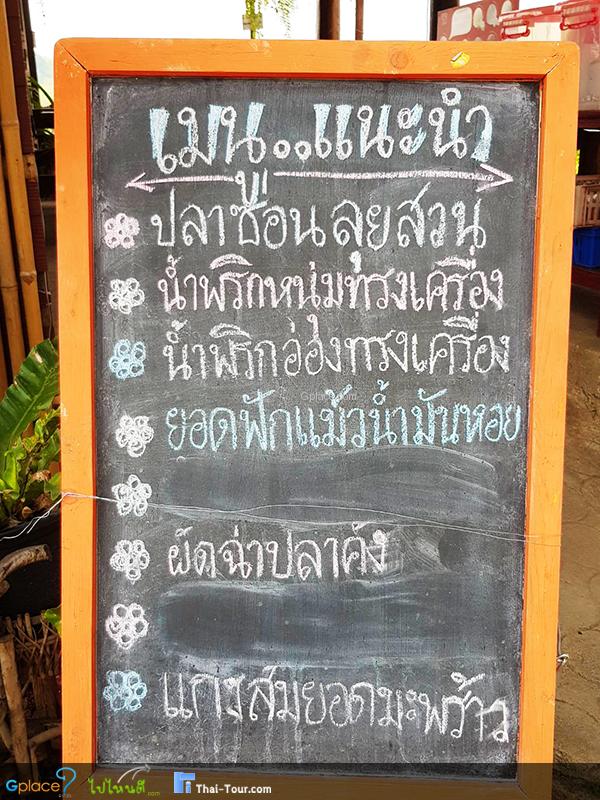 เมนู..แนะนำ
ปลาช่อนลุยสวน
น้ำพริกหนุ่มทรงเครื่อง
น้ำพริกอ่องทรงเครื่อง
ยอดฟักแม้วน้ำมันหอย
ผัดฉ่าปลาคัง
แกงส้มยอดมะพร้าว
Gplace.com
Gplace?.com ไปไหนดี.com Thai-Tour.com